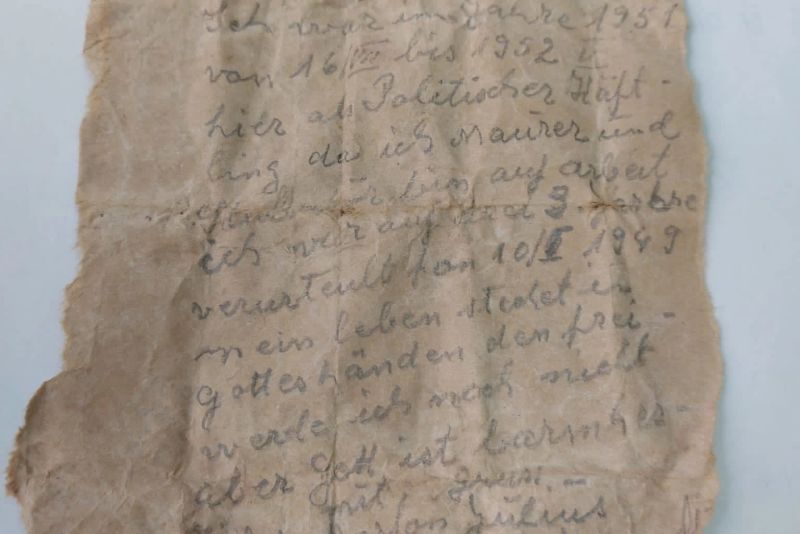 Ich war im Jahre 1951
von 16/VII bis 1952 V
hier als Politischer Häft-
ling da ich Maurer und
bin auf arbeit
ich war auf drei 3. Jahre
verurteult fon 10/I 1949
mein leben stehet in
Gotteshänden den frei-
werde ich noch nicht
aber gott ist barmher-
mit.
Julius